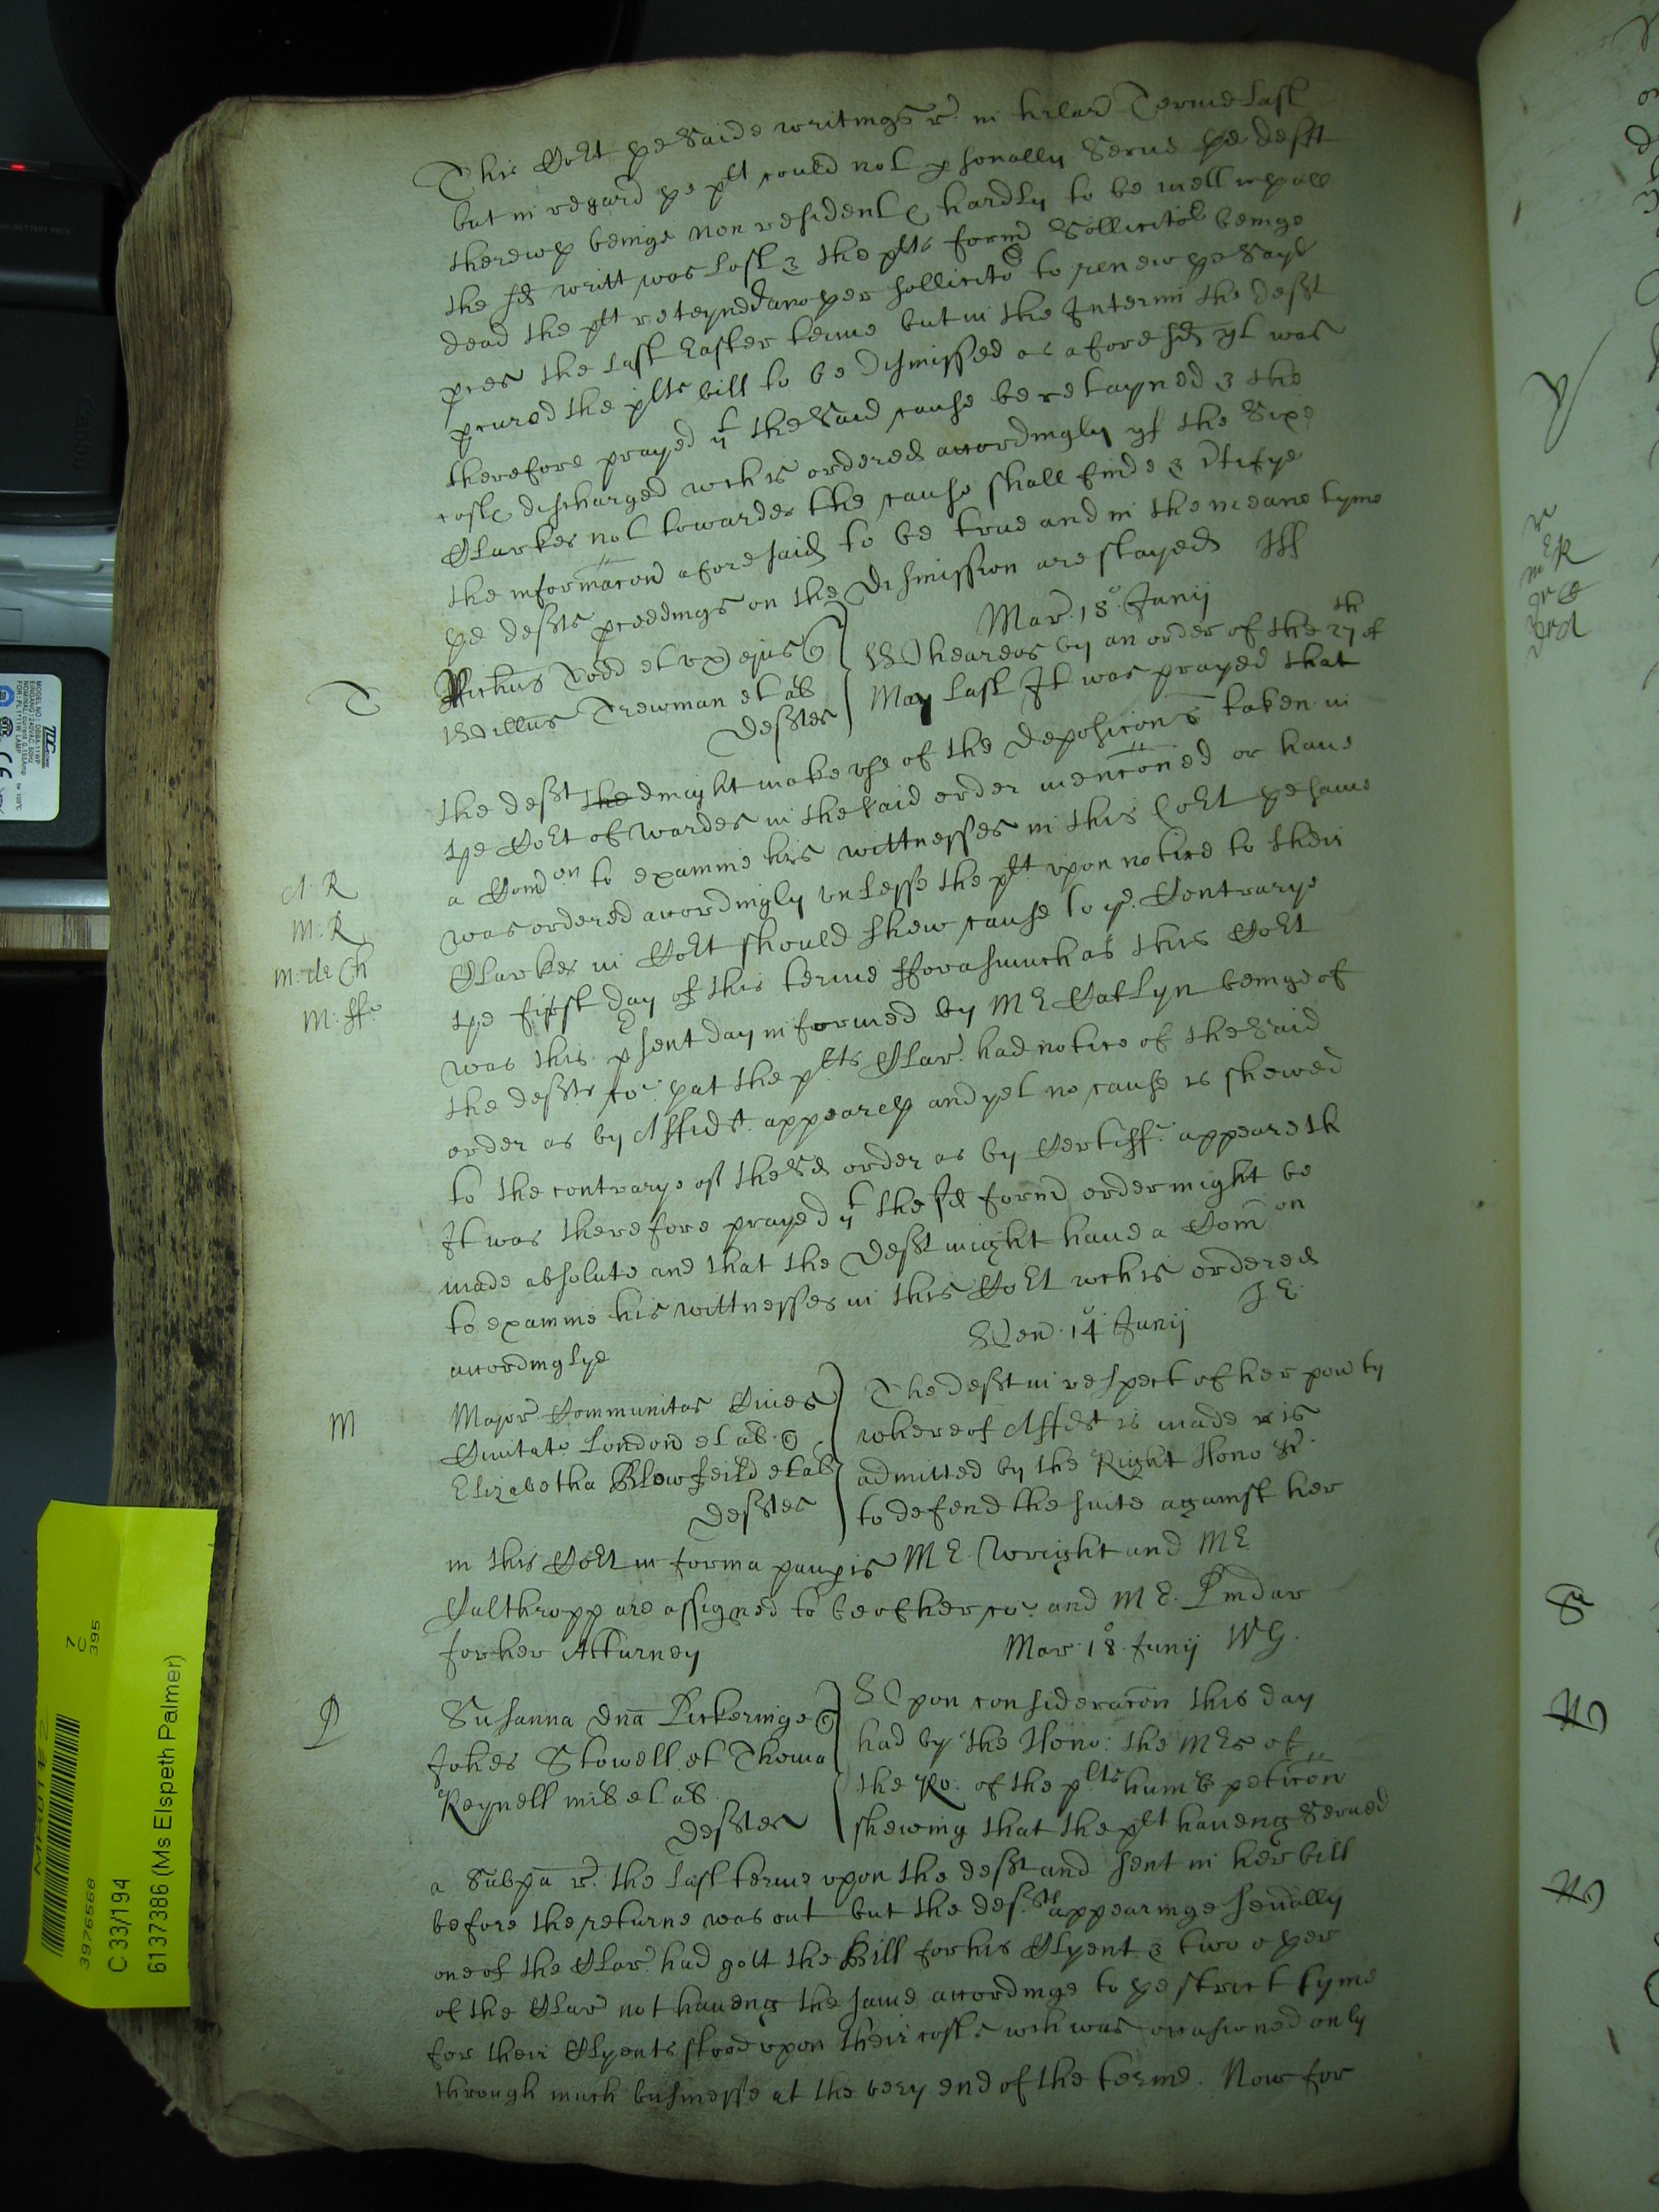 This Cort ye saide writings r. in hilar Terme last
but in regard ye plt could not psonally Serve ye deft
therewth beinge non resident & hardly to be mett wthall
the sd writt was lost & the plts form Sollicitor beinge
dead the plt reteyned another sollicitor to renew ye sayd
pces the last Easter terme but in the Interim the deft
pcured the plts bill to be dismissed as aforesd yt was
therefore prayed yt the said cause be retayned & the
costs discharged wch is ordered accordingly yf the Sixe
Clarkes not towardes the cause shall finde & Ctifye
the informacon aforesaid to be true and in the meane tyme
ye defts pceedings on the Dismission are stayed
Mar. 18° Junij
T
Richus Todd et ux ejus
Willus Trewman et al
Deftes
Whereas by an order of the 27th of
May last It was prayed that
the deft the might make use of the deposicons taken in
the Cort of Wardes in the said order mencioned or have
a Comon to examine his wittnesses in this Cort ye same
was ordered accordingly unlesse the plt upon notice to their
Clarkes in Cort should shew cause to ye Contrarye
the first day of this terme fforasmuch as this Cort
was this psent day informed by Mr Catlyn beinge of
the defts co: yat the plts Clar. had notice of the said
order as by Affidt. appeareth and yet no cause is shewed
to the contrarye of the sd order as by Certiff. appeareth
It was therefore prayed yt the sd form order might be
made absolute and that the Deft might have a Comon
to examine his wittnesses in this Cort wch is ordered
accordinglye
J E.
A R
M. R
m: de Ch
m: ff
Wen. 14 Junij
M
Major Communitas Cives
Civitat London et al
Elizabetha Blowfeild et al
Deftes
The deft in respect of her povty
whereof Affidt is made is
admitted by the Right Hono &c.
to defend the suite against her
in this Cort in forma paupis Mr. Wright and Mr
Calthropp are assigned to be of her co: and Mr. Pindar
for her Atturney
W G.
Mar. 18 Junij
P
Susanna Dna Pickeringe
Johes Stowell et Thoma
Reynell mil et al
Deftes
Upon consideracon this day
had by the Hono: the Mr of
the Ro: of the plts humb peticon
shewing that the plt haveng Served
a Subpa r. the last terme upon the deft and sent in her bill
before the returne was out but the defts appearinge sevally
one of the Clar. had gott the Bill for his Clyent & two other
of the Clar not haveng the same accordinge to ye strict tyme
for their Clyents stood upon their costs wch was occasioned only
through much businesse at the very end of the terme. Now for
TDC
MODEL NO: DSBA-11WP
C 33/194
6137386 (Ms Elspeth Palmer)
3976568
7
C
395